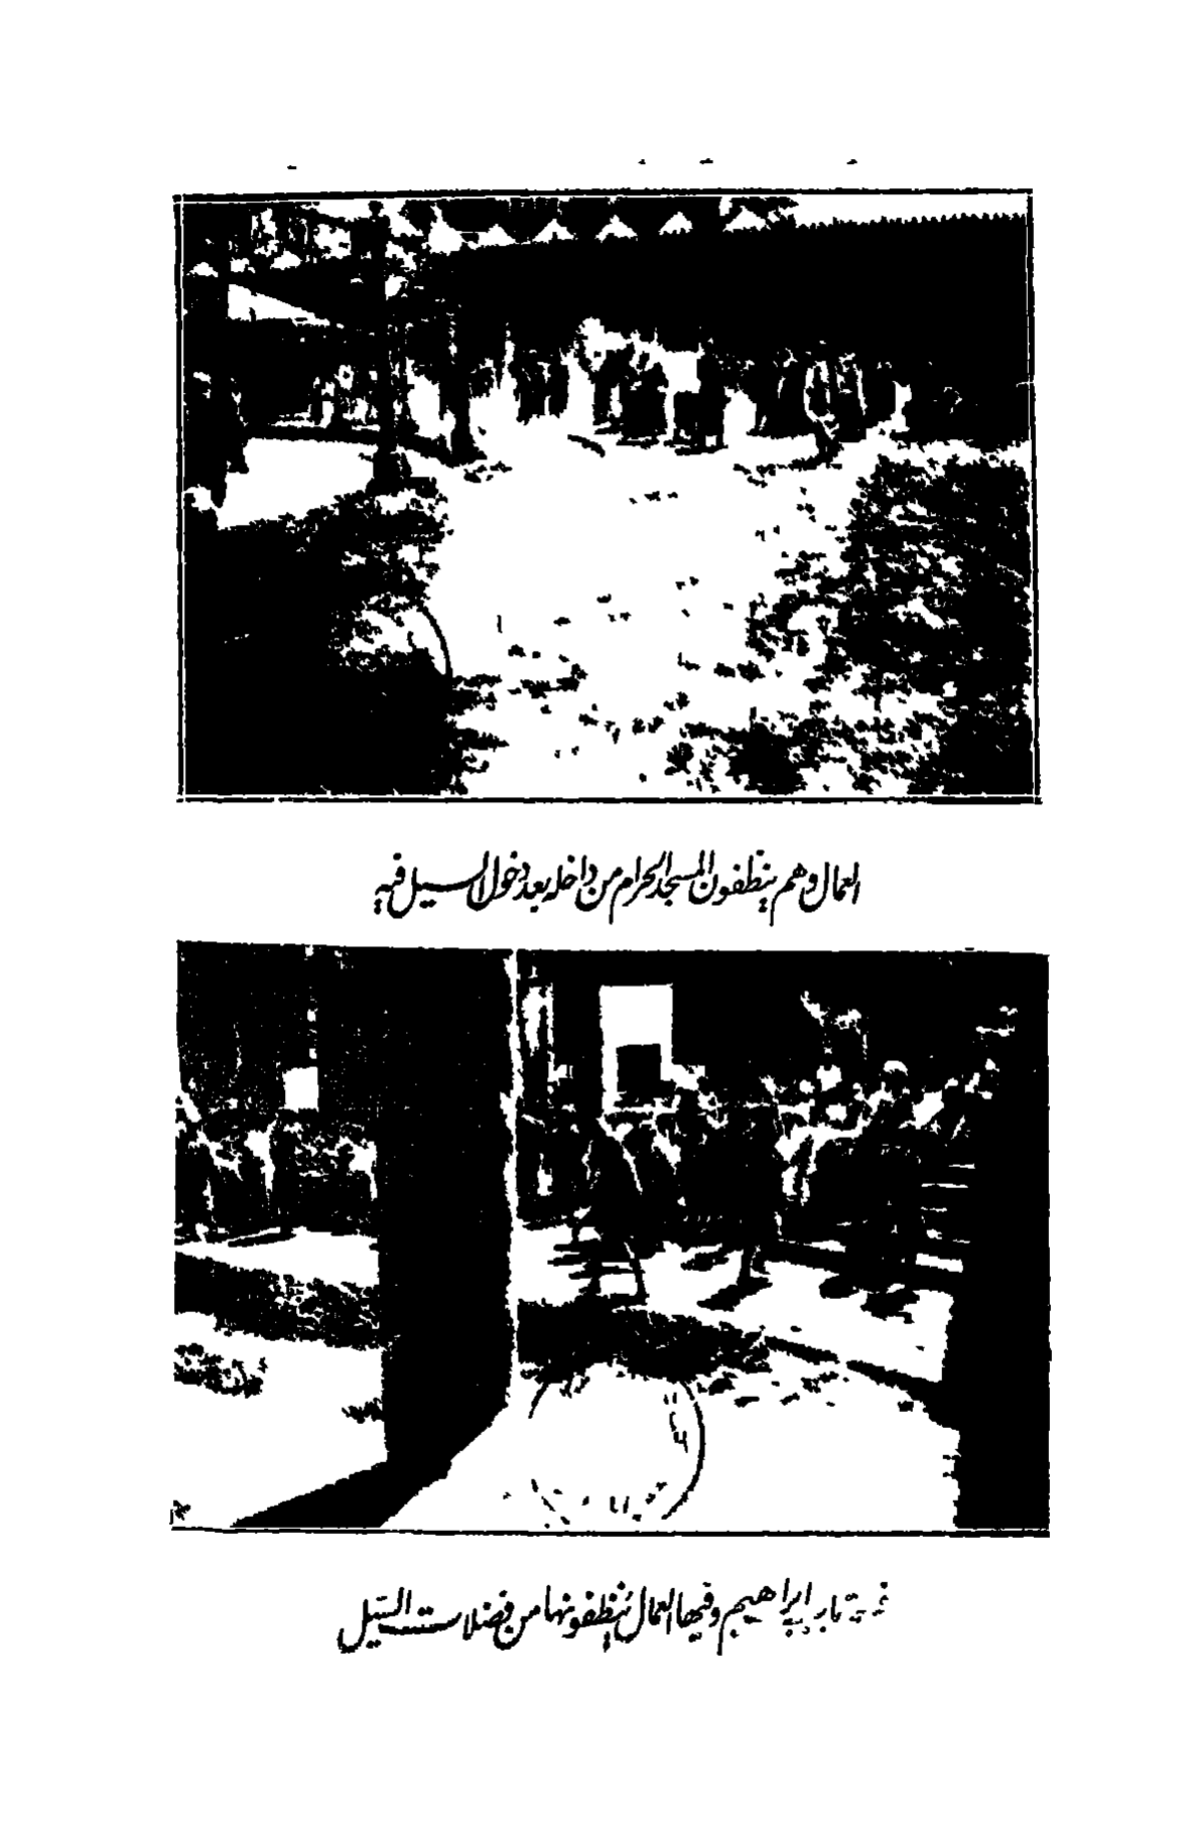 العمال وهم ينظفون المسجد الحرام من داخله بعد دخول السيل فيه
باب إبراهيم وفيها العمال ينظفونها من فضلات السيل